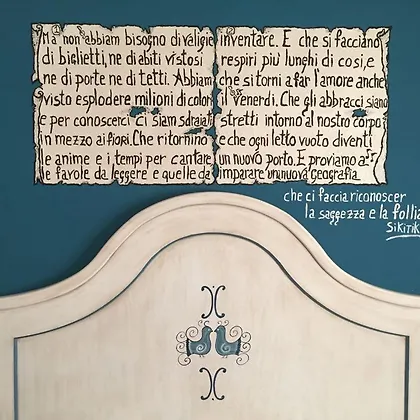 Ma non abbiam bisogno di valigie
di biglietti, ne di abiti vistosi
ne di porte ne di tetti. Abbiam
visto esplodere milioni di color
e per conoscerci ci siam sdraiati
in mezzo ai fiori. Che ritornino
le anime e i tempi per cantare
le favole da leggere e quelle da
inventare. E che si facciano
respiri più lunghi di così, e
che si torni a far l'amore anche
il Venerdì. Che gli abbracci siano
stretti intorno al nostro corpo
e che ogni letto vuoto diventi
un nuovo porto. E proviamo a
imparare una nuova geografia
che ci faccia riconoscer
la saggezza e la follia
Sikitikis